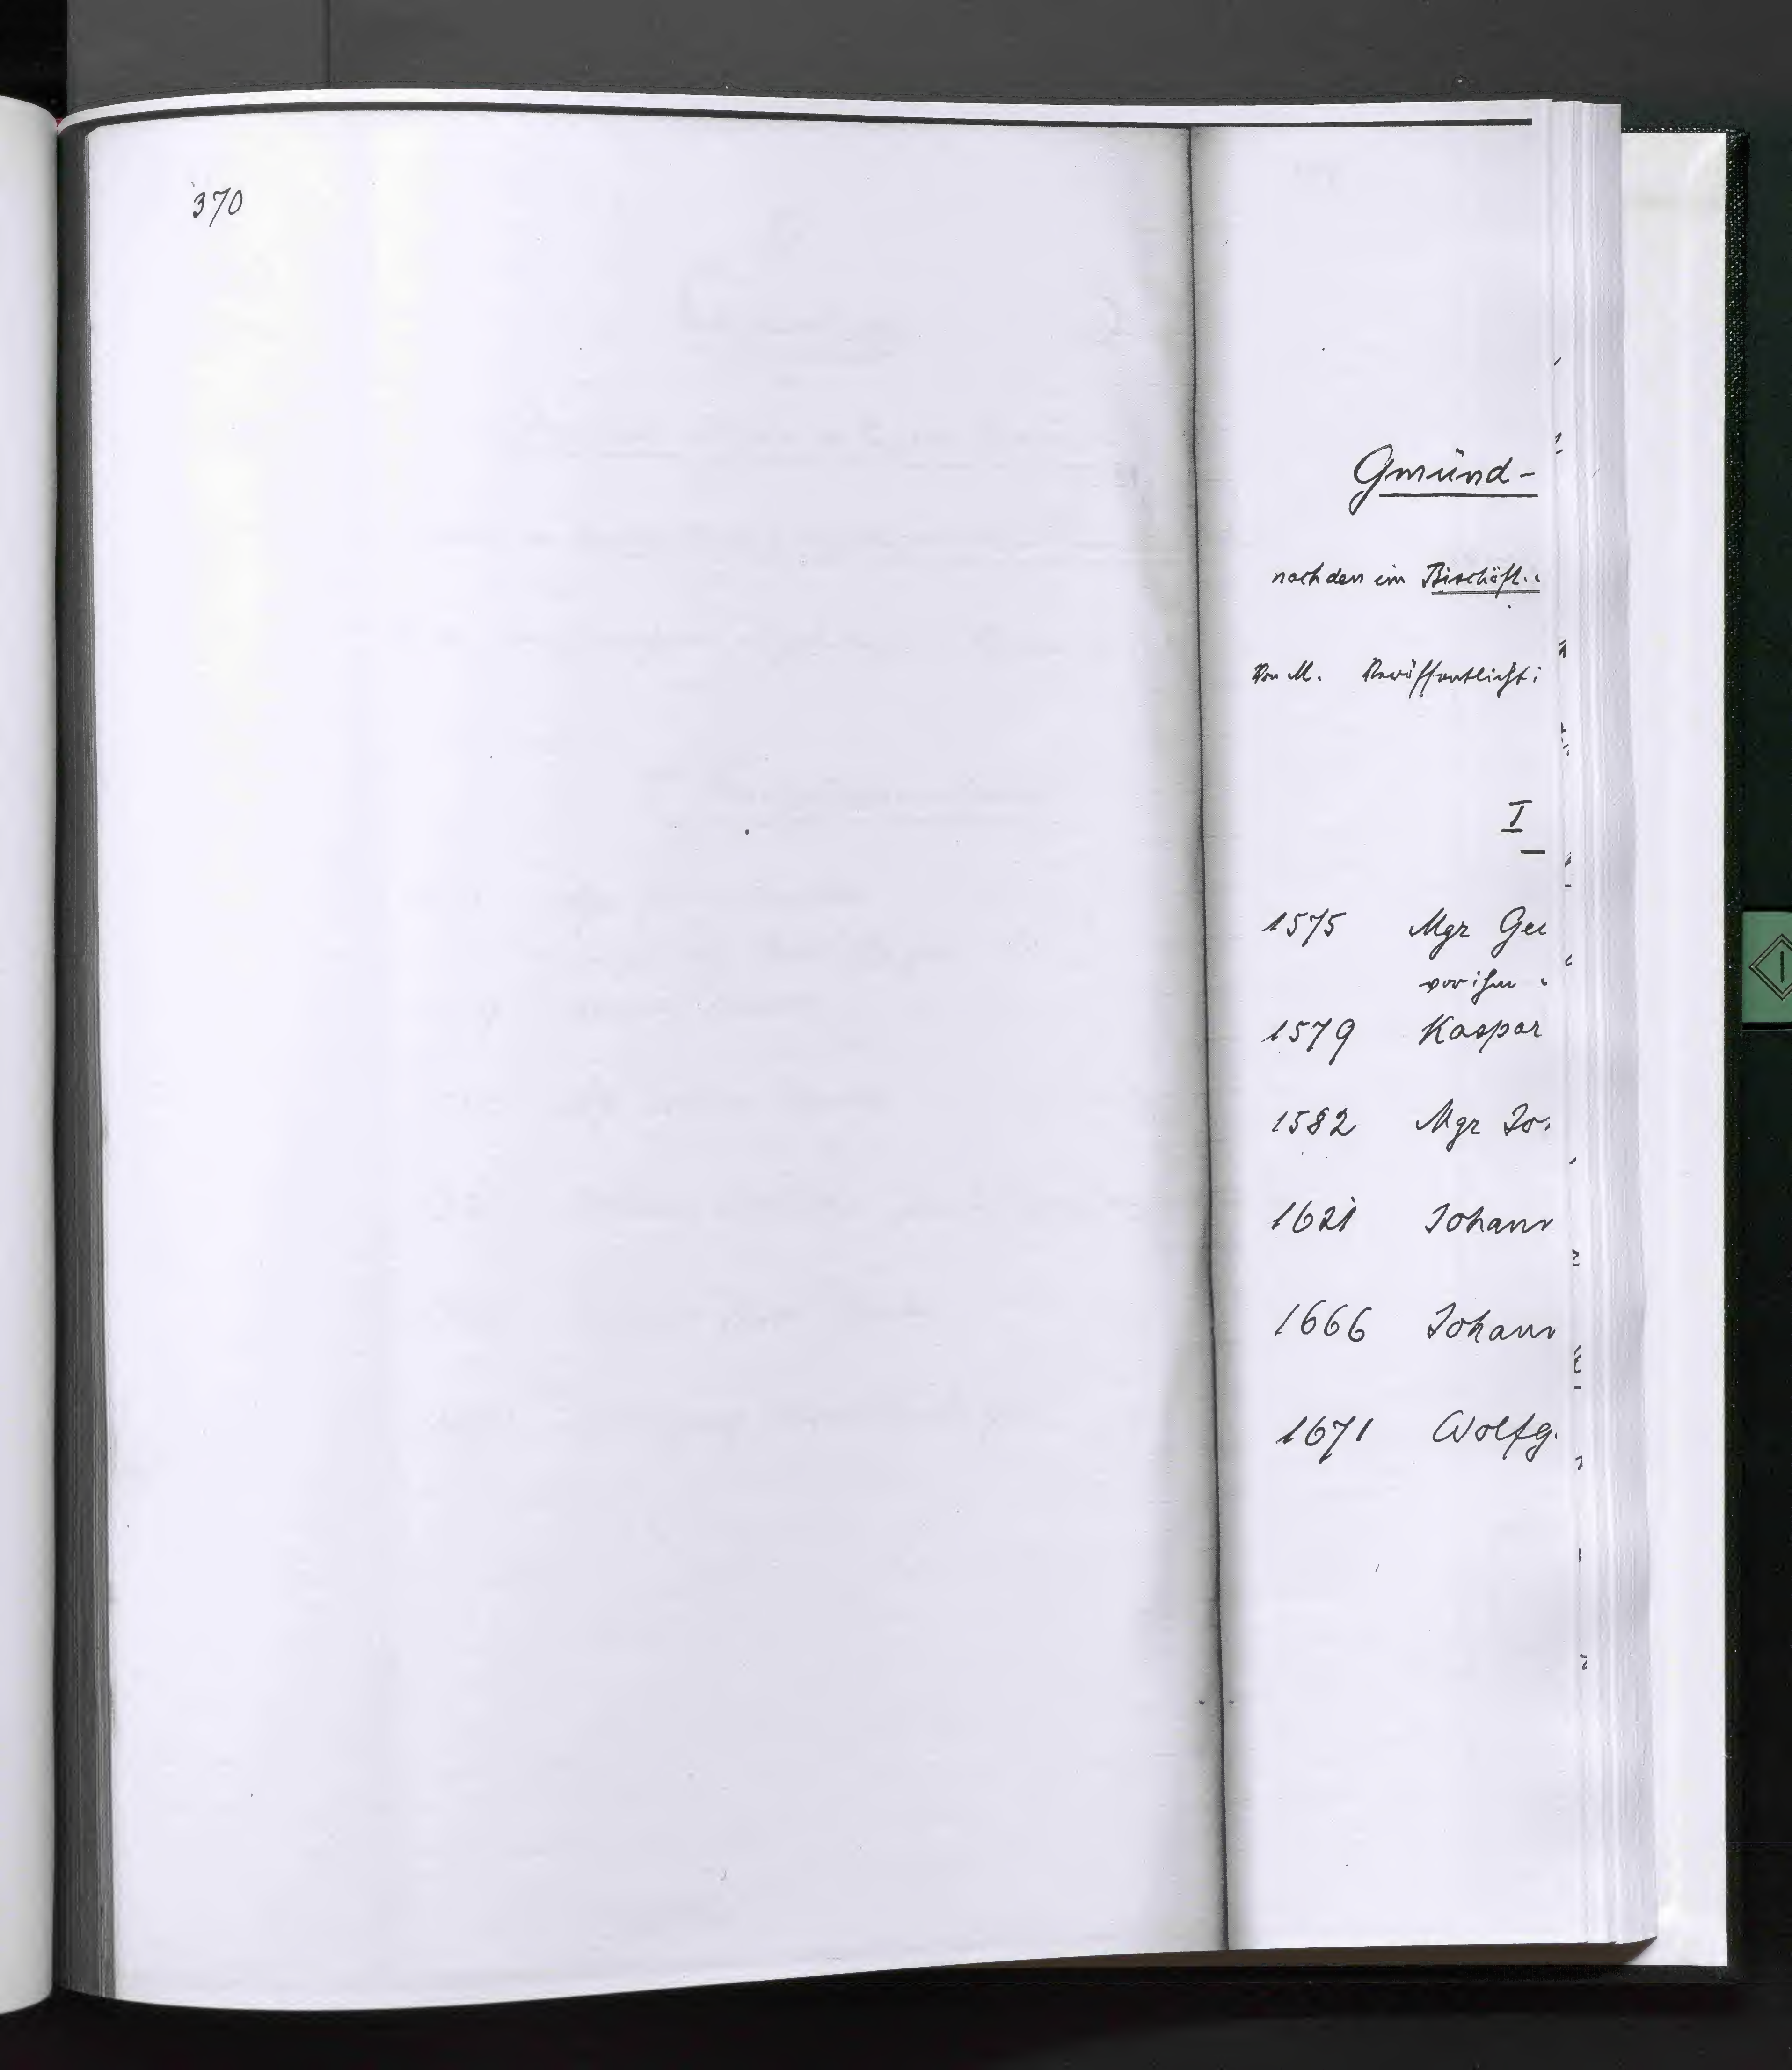 370
Gmünd-
nach den im Bischöfl.
Von M. Veröffentlicht:
I
1575 Mgr Ge
vor ihm
1579 Kaspar
1582 Mgr Jo
1621 Johann
1666 Johann
1671 Wolfg